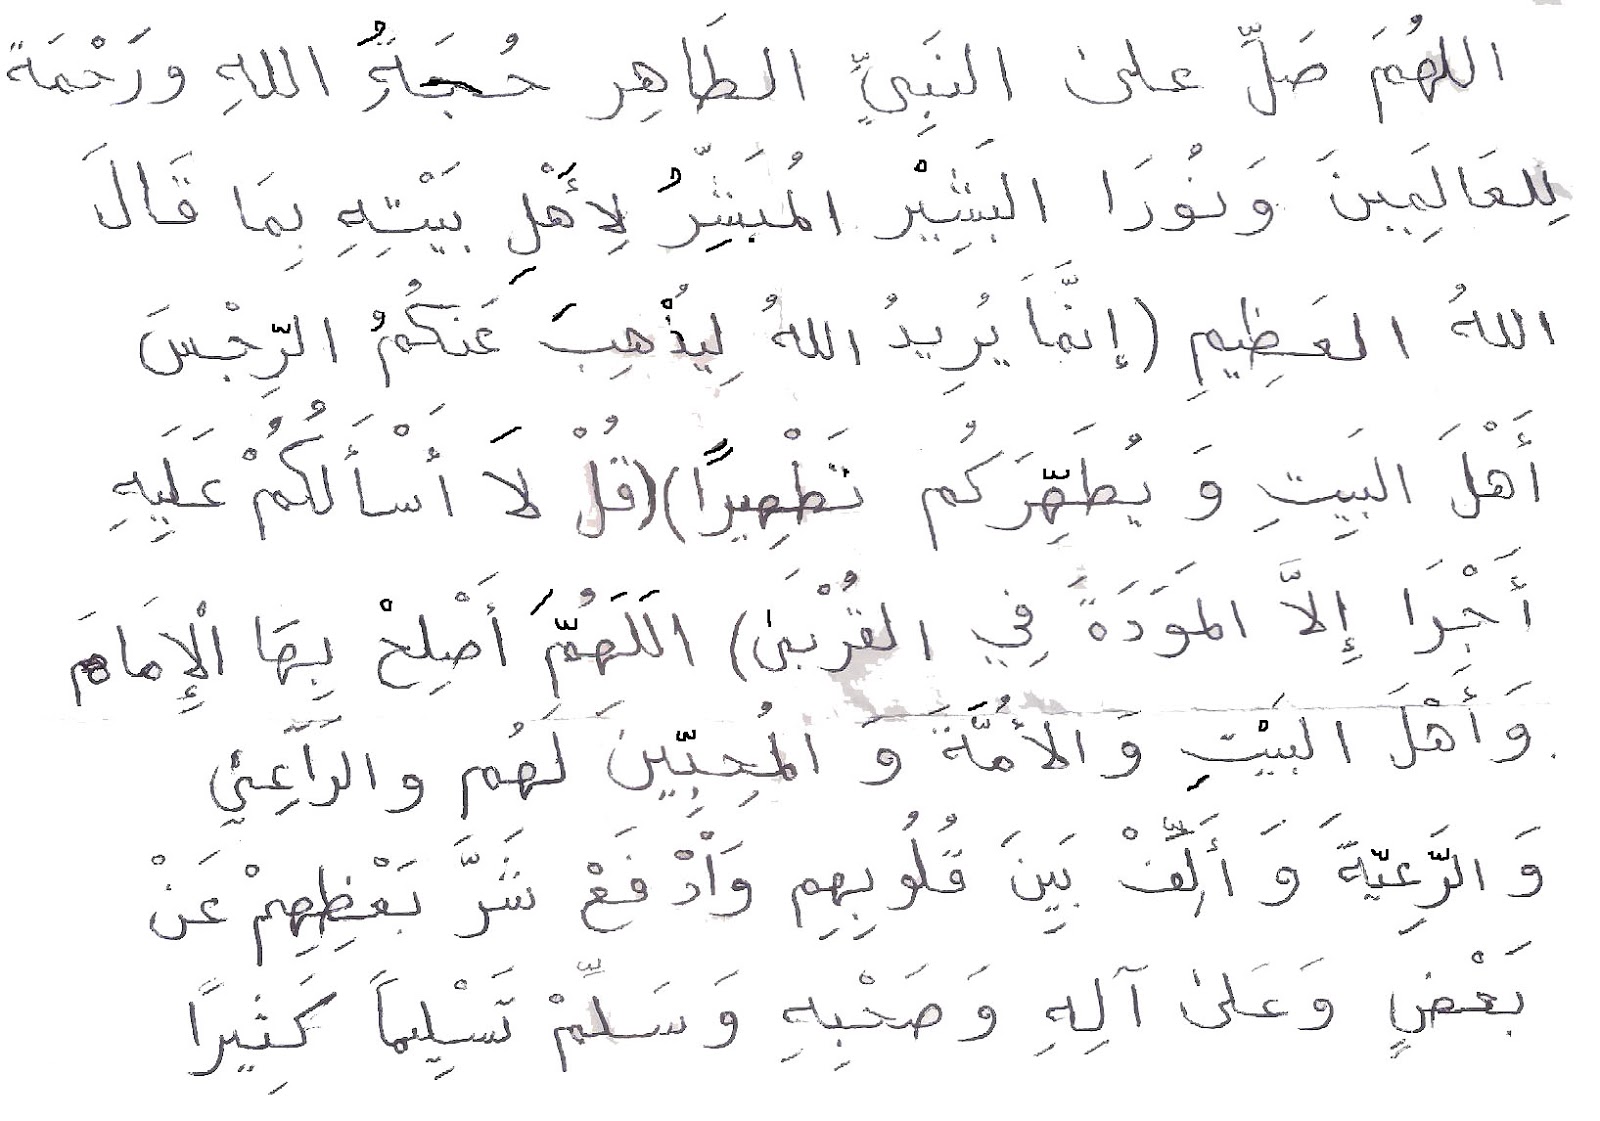 اللهُمَ صَلِّ علىٰ النَبِيِّ الطَاهِرِ حُجَةُ اللهِ ورَحْمَة
لِلعَالَمِينَ وَنُورَا البَشِيْرِ المُبَشِّرُ لِأَهْلِ بَيْتِهِ بِمَا قَالَ
اللهُ العَظِيمِ (إنَّمَا يُرِيدُ اللهُ لِيُذْهِبَ عَنكُمُ الرِّجْسَ
أَهْلَ البَيِتِ وَ يُطَهِّرَكُم تَطْهِيرًا)(قُلْ لاَ أَسْأَلُكُمْ عَلَيِهِ
أَجْرَا إِلاَّ المَوَدَةَ فِي القُرْبَىٰ) اللَهُمَّ أَصْلِحْ بِهَا الْإِمَامَ
وَأَهْلَ البَيْتِ وَالأُمَّةَ وَ المُحِبِّينَ لَهُم والرَاعِيْ
وَ الرَّعِيَّةَ وَ أَلِّفْ بَيِنَ قُلُوبِهِم وَاْدْفَعْ شَرَّ بَعْظِهِمْ عَنْ
بَعْضٍ وَعَلىٰ آلِهِ وَصَحْبِهِ وَسَلِّمْ تَسْلِيماً كَثِيرًا